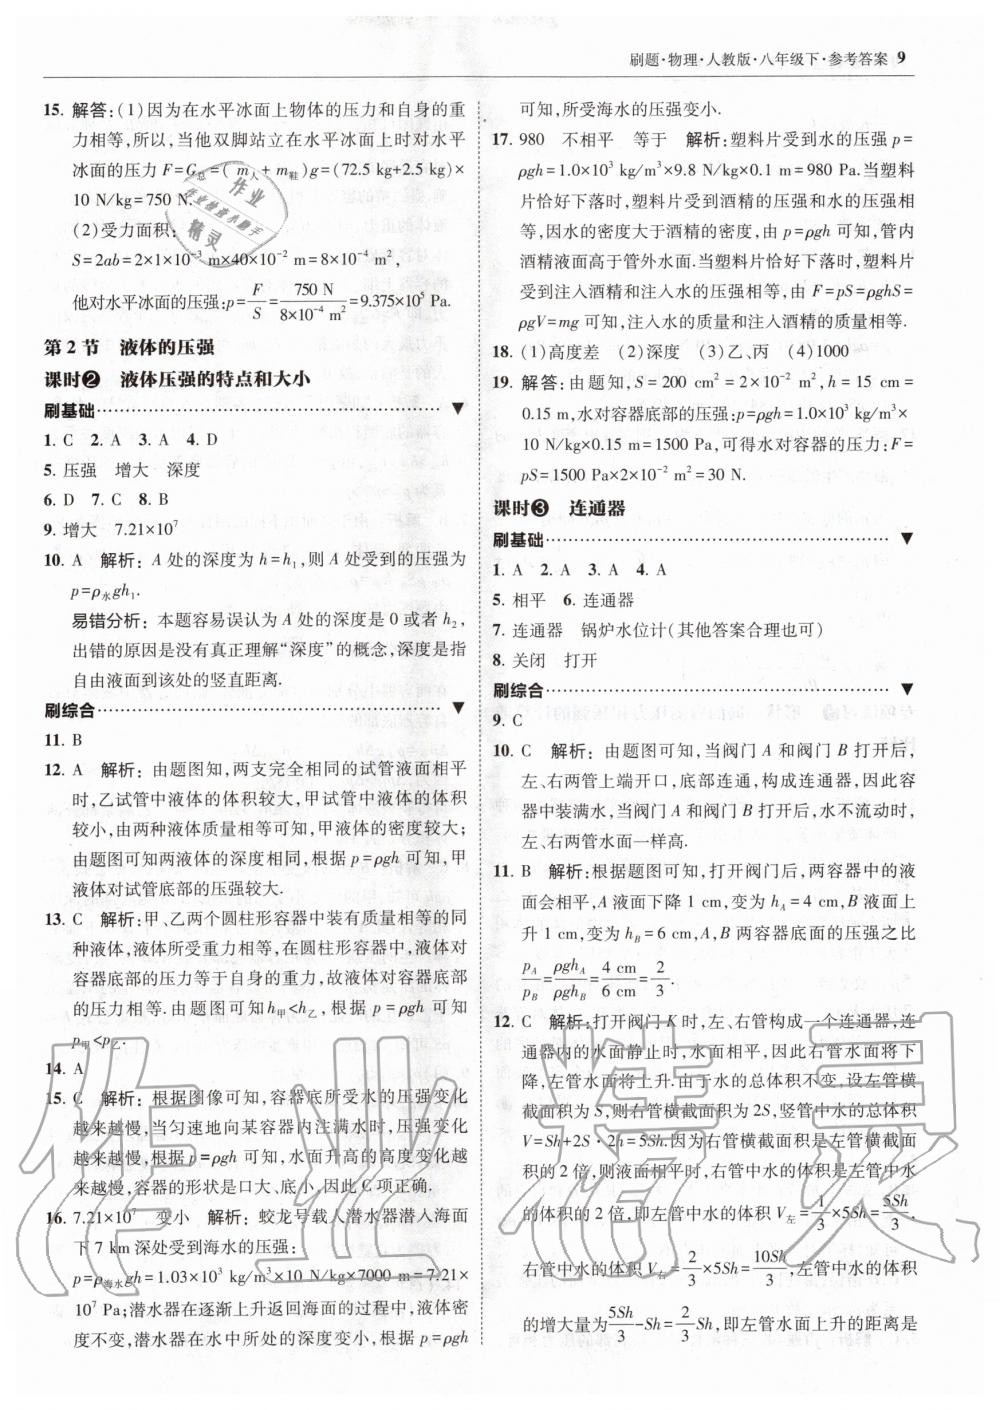 刷题·物理·人教版·八年级下·参考答案 9
15. 解答:(1)因为在水平冰面上物体的压力和自身的重
力相等,所以,当他双脚站立在水平冰面上时对水平
冰面的压力 F=G总=(m人+m鞋)g=(72.5 kg+2.5 kg)×
10 N/kg=750 N.
(2)受力面积:
S=2ab=2×1×10⁻³ m×40×10⁻² m=8×10⁻⁴ m²,
他对水平冰面的压强:p=F/S=750 N/8×10⁻⁴ m²=9.375×10⁵ Pa.
第2节 液体的压强
课时❷ 液体压强的特点和大小
刷基础
1. C 2. A 3. A 4. D
5. 压强 增大 深度
6. D 7. C 8. B
9. 增大 7.21×10⁷
10. A 解析: A 处的深度为 h=h₁,则 A 处受到的压强为
p=ρ水gh₁.
易错分析: 本题容易误认为 A 处的深度是 0 或者 h₂,
出错的原因是没有真正理解“深度”的概念,深度是指
自由液面到该处的竖直距离.
刷综合
11. B
12. A 解析: 由题图知,两支完全相同的试管液面相平
时,乙试管中液体的体积较大,甲试管中液体的体积
较小,由两种液体质量相等可知,甲液体的密度较大;
由题图可知两液体的深度相同,根据 p=ρgh 可知,甲
液体对试管底部的压强较大.
13. C 解析:甲、乙两个圆柱形容器中装有质量相等的同
种液体,液体所受重力相等,在圆柱形容器中,液体对
容器底部的压力等于自身的重力,故液体对容器底部
的压力相等.由题图可知h甲<h乙,根据 p=ρgh 可知
p甲<p乙.
14. A
15. C 解析: 根据图像可知,容器底所受水的压强变化
越来越慢,当匀速地向某容器内注满水时,压强变化
越来越慢,根据p=ρgh可知,水面升高的高度变化越
来越慢,容器的形状是口大、底小,因此C项正确.
16. 7.21×10⁷ 变小 解析: 蛟龙号载人潜水器潜入海面
下 7 km深处受到海水的压强:
p=ρ海水gh=1.03×10³ kg/m³×10 N/kg×7000 m=7.21×
10⁷ Pa;潜水器在逐渐上升返回海面的过程中,液体密
度不变,潜水器在水中所处的深度变小,根据 p=ρgh
可知,所受海水的压强变小.
17. 980 不相平 等于 解析:塑料片受到水的压强 p=
ρgh=1.0×10³ kg/m³×9.8 N/kg×0.1 m=980 Pa.当塑料
片恰好下落时,塑料片受到酒精的压强和水的压强相
等,因水的密度大于酒精的密度,由 p=ρgh 可知,管内
酒精液面高于管外水面.当塑料片恰好下落时,塑料片
受到注入酒精和注入水的压强相等,由 F=pS=ρghS=
ρgV=mg 可知,注入水的质量和注入酒精的质量相等.
18. (1)高度差 (2)深度 (3)乙、丙 (4)1000
19. 解答: 由题知, S=200 cm²=2×10⁻² m², h=15 cm=
0.15 m,水对容器底部的压强:p=ρgh=1.0×10³ kg/m³×
10 N/kg×0.15 m=1500 Pa,可得水对容器的压力:F=
pS=1500 Pa×2×10⁻² m²=30 N.
课时❸ 连通器
刷基础
1. A 2. A 3. A 4. A
5. 相平 6. 连通器
7. 连通器 锅炉水位计(其他答案合理也可)
8. 关闭 打开
刷综合
9. C
10. C 解析: 由题图可知,当阀门 A 和阀门 B 打开后,
左、右两管上端开口,底部连通,构成连通器,因此容
器中装满水,当阀门 A 和阀门 B 打开后,水不流动时,
左、右两管水面一样高.
11. B 解析:根据题图可知,打开阀门后,两容器中的液
面会相平,A 液面下降 1 cm,变为 hA=4 cm,B 液面上
升 1 cm,变为 hB=6 cm,A,B 两容器底面的压强之比
pA/pB=ρghA/ρghB=4 cm/6 cm=2/3.
12. C 解析:打开阀门K时,左、右管构成一个连通器,连
通器内的水面静止时,水面相平,因此右管水面将下
降,左管水面将上升.由于水的总体积不变,设左管横
截面积为 S,则右管横截面积为 2S,竖管中水的总体积
V=Sh+2S·2h=5Sh.因为右管横截面积是左管横截面
积的 2 倍,则液面相平时,右管中水的体积是左管中水
的体积的 2 倍,即左管中水的体积 V左=1/3×5Sh=5Sh/3,
右管中水的体积 V右=2/3×5Sh=10Sh/3.左管中水的体积
的增大量为5Sh/3-Sh=2/3Sh,即左管水面上升的距离是
作业
作业检查小助手
精灵
作业精灵